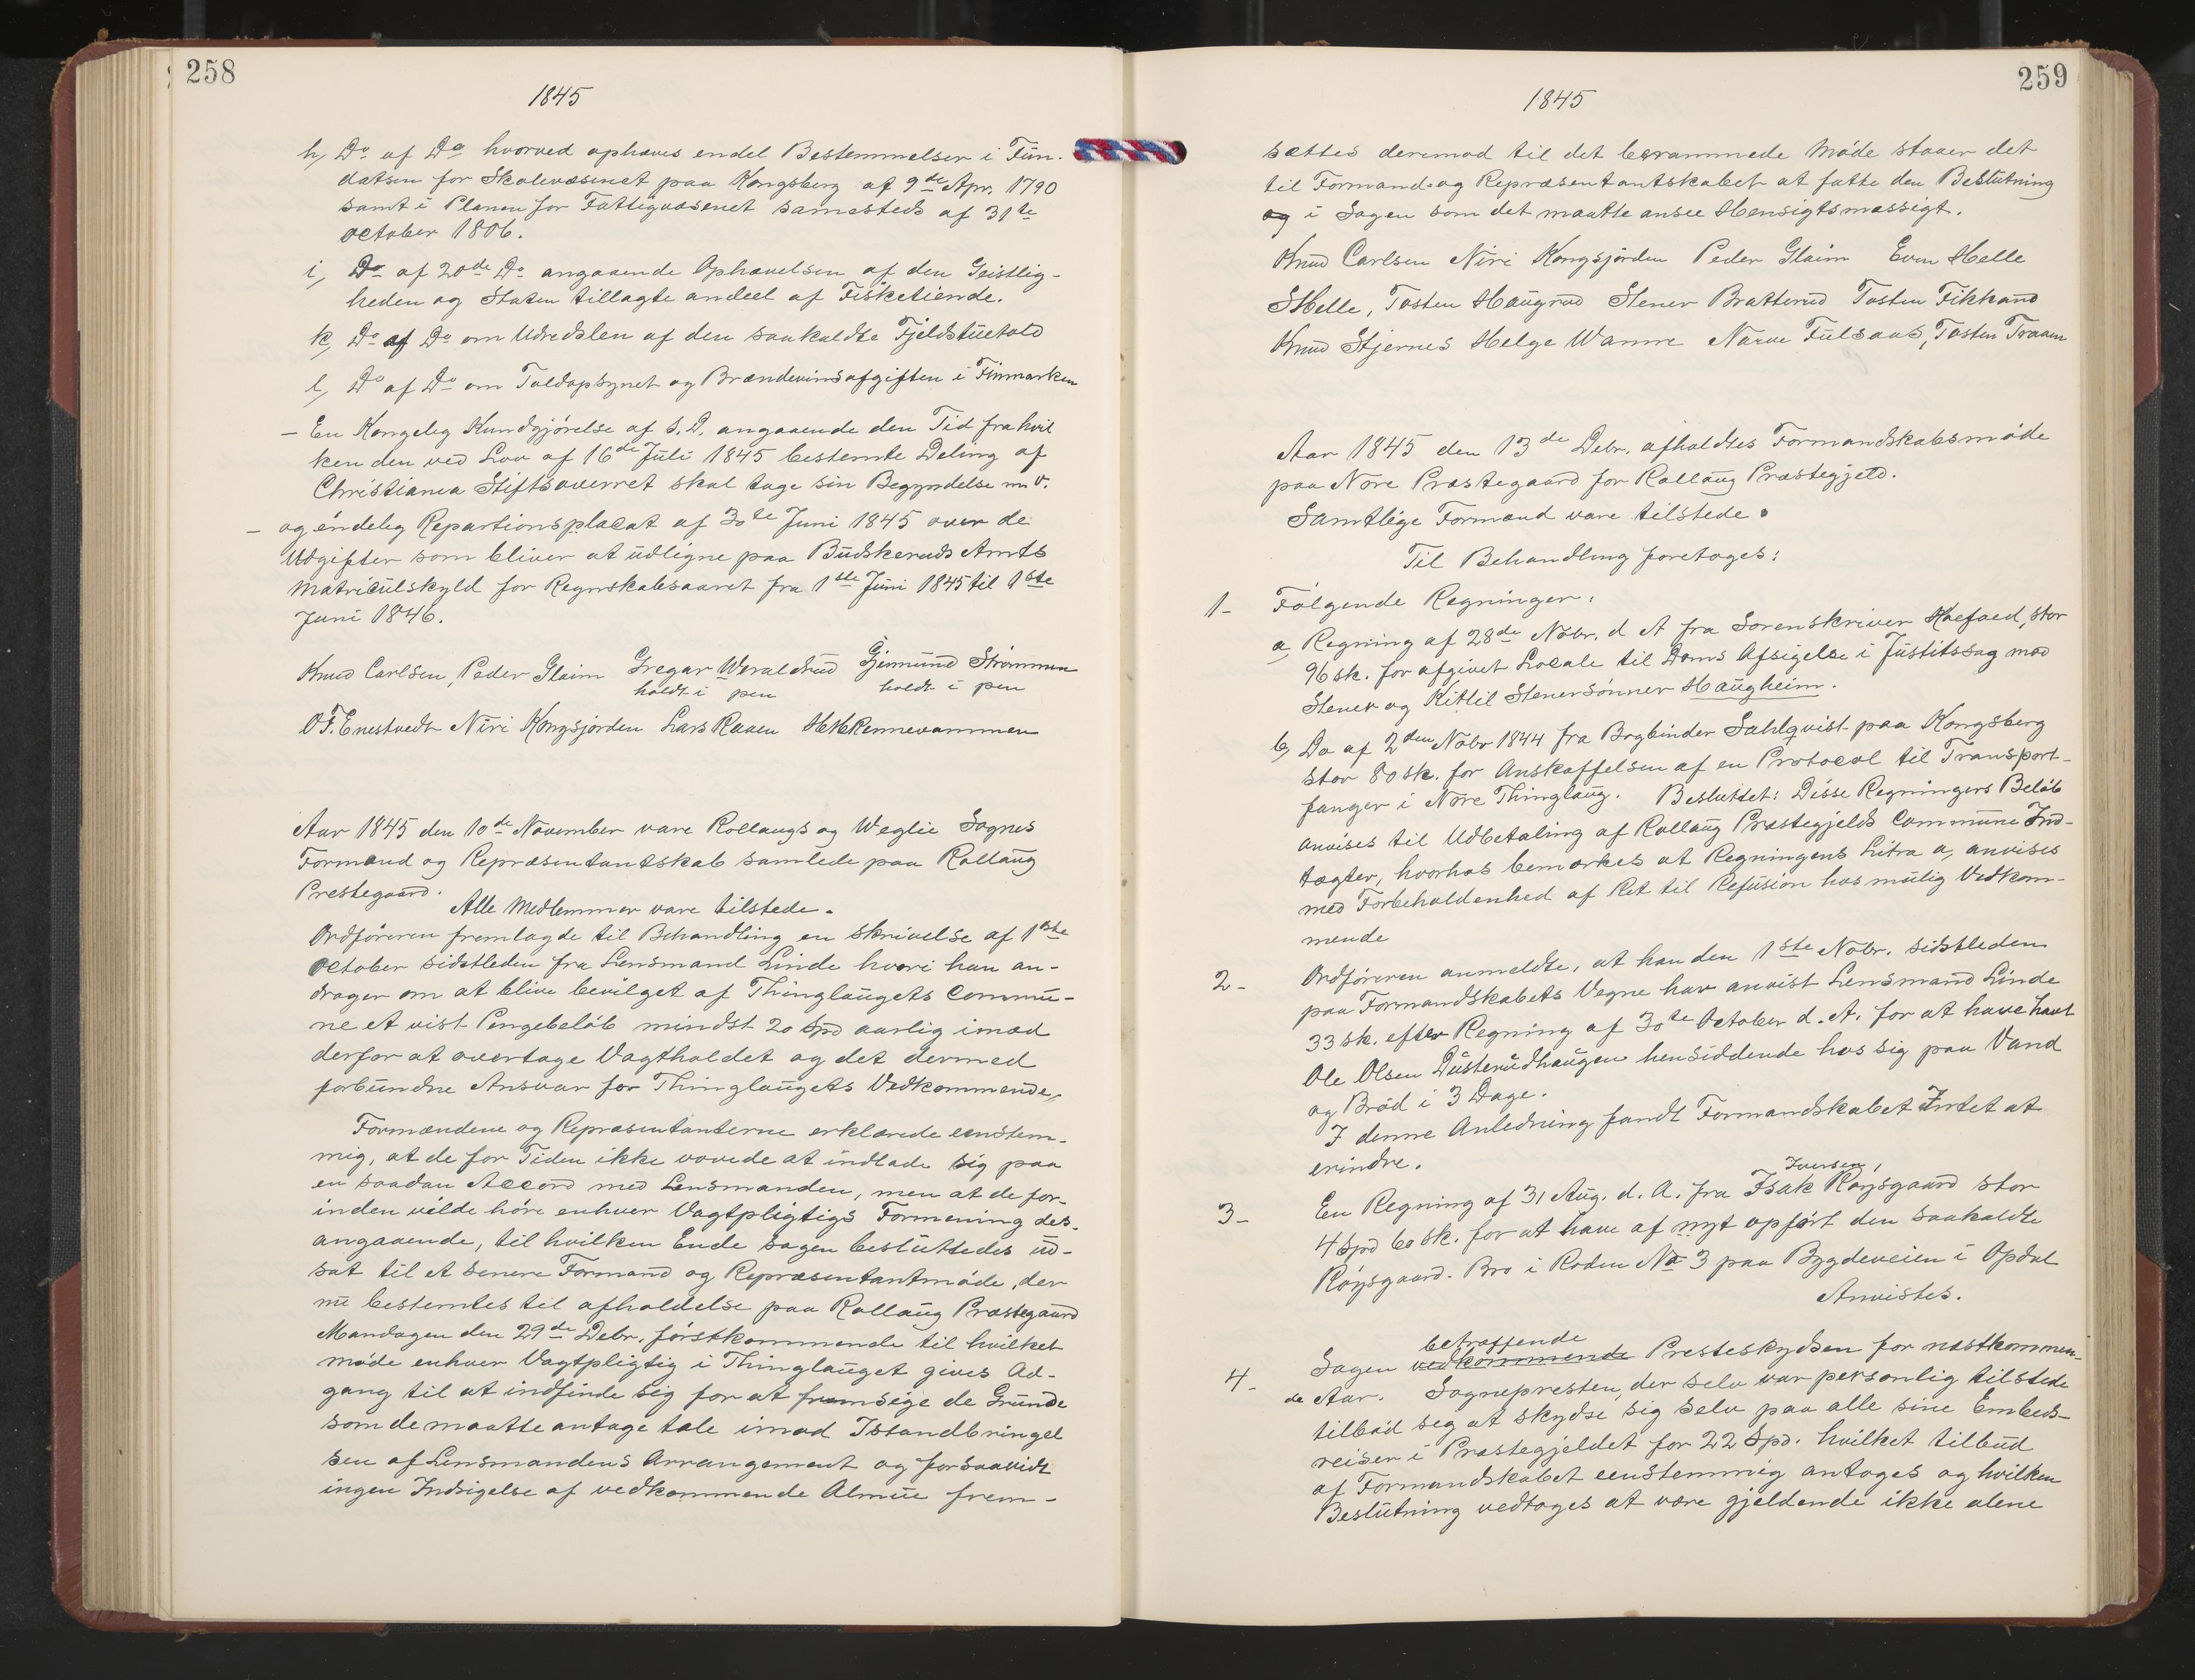 258
1845
h, Do af Do hvorved ophæves endel Bestemmelser i Fun-
datsen for Skolevæsenet paa Kongsberg af 9de Apr. 1790
samt i Planen for Fattigvæsenet samesteds af 31te
October 1806.
i, Do af 20de Do angaaende Ophævelsen af den Geistlig-
heden og Staten tillagte andeel af Fisketiende.
k, Do af Do om Udredslen af den saakaldte Fjeldstuetold
l, Do af Do om Toldopsynet og Brændevinsafgiften i Finmarken
- En Kongelig Kundgjörelse af s. D. angaaende den Tid fra hvil
ken den ved Lov af 16de Juli 1845 bestemte Deling af
Christiania Stiftsoverret skal tage sin Begyndelse m. v.
- og endelig Repartionsplacat af 30te Juni 1845 over de
Udgifter som bliver at udligne paa Budskeruds Amts
Matriculskyld for Regnskabsaaret fra 1ste Juni 1845 til 1ste
Juni 1846.
Knud Carlsen, Peder Glaim Gregar Woraldrud Gjermund Strömmen
holdt i pen holdt i pen
O F. Enestvedt Niri Kongsjorden Lars Raaen H H Kennevammen
Aar 1845 den 10de November vare Rollaugs og Weglie Sognes
Formænd og Repræsentantskab samlede paa Rollaug
Prestegaard.
Alle Medlemmer vare tilstede.
Ordföreren fremlagde til Behandling en skrivelse af 1ste
October sidstleden fra Lensmand Linde hvori han an-
drager om at blive bevilget af Thinglaugets Commu-
ne et vist Pengebelöb mindst 20 Spd aarlig imod
derfor at overtage Vagtholdet og det dermed
forbundne Ansvar for Thinglaugets Vedkommende,
Formændene og Repræsentanterne erklærede eenstem-
mig, at de for Tiden ikke vovede at indlade sig paa
en saadan Accord med Lensmanden, men at de for-
inden vilde höre enhver Vagtpligtigs Formening des-
angaaende, til hvilken Ende sagen besluttedes ud-
sat til et senere Formand og Repræsentantmöde, der
nu bestemtes til afholdelse paa Rollaug Præstegaard
Mandagen den 29de Debr. förstkommende til hvilket
möde enhver Vagtpligtig i Thinglauget gives Ad-
gang til at indfinde sig for at fremsige de Grunde
som de maatte antage tale imod Istandbringel
sen af Lensmandens Arrangement og forsaavidt
ingen Indsigelse af vedkommende Almue frem-
259
1845
sættes deremod til det berammede Möde staaer det
til Formand- og Repræsentantskabet at fatte den Beslutning
og i Sagen som det maatte ansee Hensigtsmæssigt.
Knud Carlsen Niri Kongsjorden Peder Glaim Even Helle
S Helle, Tosten Haugrud Stener Bratterud Tosten Fikkand
Knud Stjernes Helge Wamre Narve Fulsaas, Tosten Traaen
Aar 1845 den 13de Debr. afholdtes Formandskabsmöde
paa Nore Præstegaard for Rollaug Præstegjeld.
Samtlige Formænd vare tilstede.
Til Behandling foretoges:
1- Fölgende Regninger:
a, Regning af 28de Nobr. d A fra Sorenskriver Koefoed, stor
96 sk. for afgivet Locale til Doms Afsigelse i Justitssag mod
Stener og Kittil Stenersönner Haugheim.
b, Do af 2den Nobr 1844 fra Bogbinder Sahlqvist paa Kongsberg
stor 80 sk. for Anskaffelsen af en Protocol til Transport-
fanger i Nore Thinglaug. Besluttet: Disse Regningers Belöb
anvises til Udbetaling af Rollaug Præstegjelds Commune Ind-
tægter, hvorhos bemærkes at Regningens Litra a, anvises
med Forbeholdenhed af Ret til Refusion hos mulig Vedkom-
mende
2- Ordföreren anmeldte, at han den 1ste Nobr. sidstleden
paa Formandskabets Vegne har anvist Lensmand Linde
33 sk. efter Regning af 30te October d. A. for at have havt
Ole Olsen Dusterudhaugen hensiddende hos sig paa Vand
og Bröd i 3 Dage.
I denne Anledning fandt Formandskabet Intet at
erindre.
Iversen,
3- En Regning af 31 Aug. d. A. fra Isak Röysgaard stor
4 Spd 60 sk. for at have af nyt opfört den saakaldte
Röysgaard. Bro i Roden No 3 paa Bygdeveien i Opdal
Anvistes.
betræffende
4- Sagen vedkommende Presteskydsen for næstkommen-
de Aar. Sognepresten, der selv var personlig tilstede
tilböd seg at skydse sig selv paa alle sine Embeds-
reiser i Præstegjeldet for 22 Spd. hvilket tilbud
af Formandskabet eenstemmig antoges og hvilken
Beslutning vedtoges at være gjeldende ikke alene